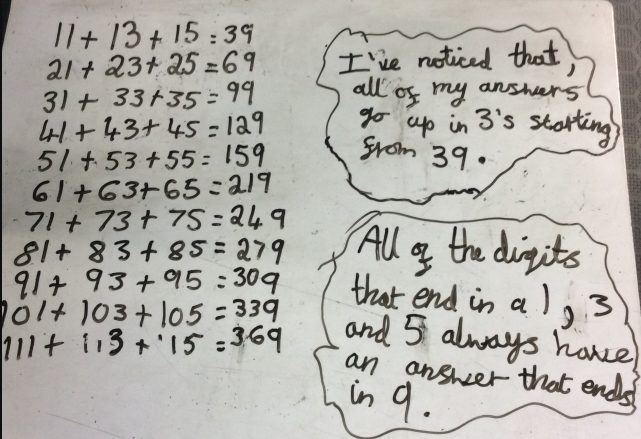 11 + 13 + 15 = 39
21 + 23 + 25 = 69
31 + 33 + 35 = 99
41 + 43 + 45 = 129
51 + 53 + 55 = 159
61 + 63 + 65 = 219
71 + 73 + 75 = 249
81 + 83 + 85 = 279
91 + 93 + 95 = 309
101 + 103 + 105 = 339
111 + 113 + 115 = 369
I've noticed that,
all of my answers
go up in 3's starting
from 39.
All of the digits
that end in a 1, 3
and 5 always have
an answer that ends
in 9.